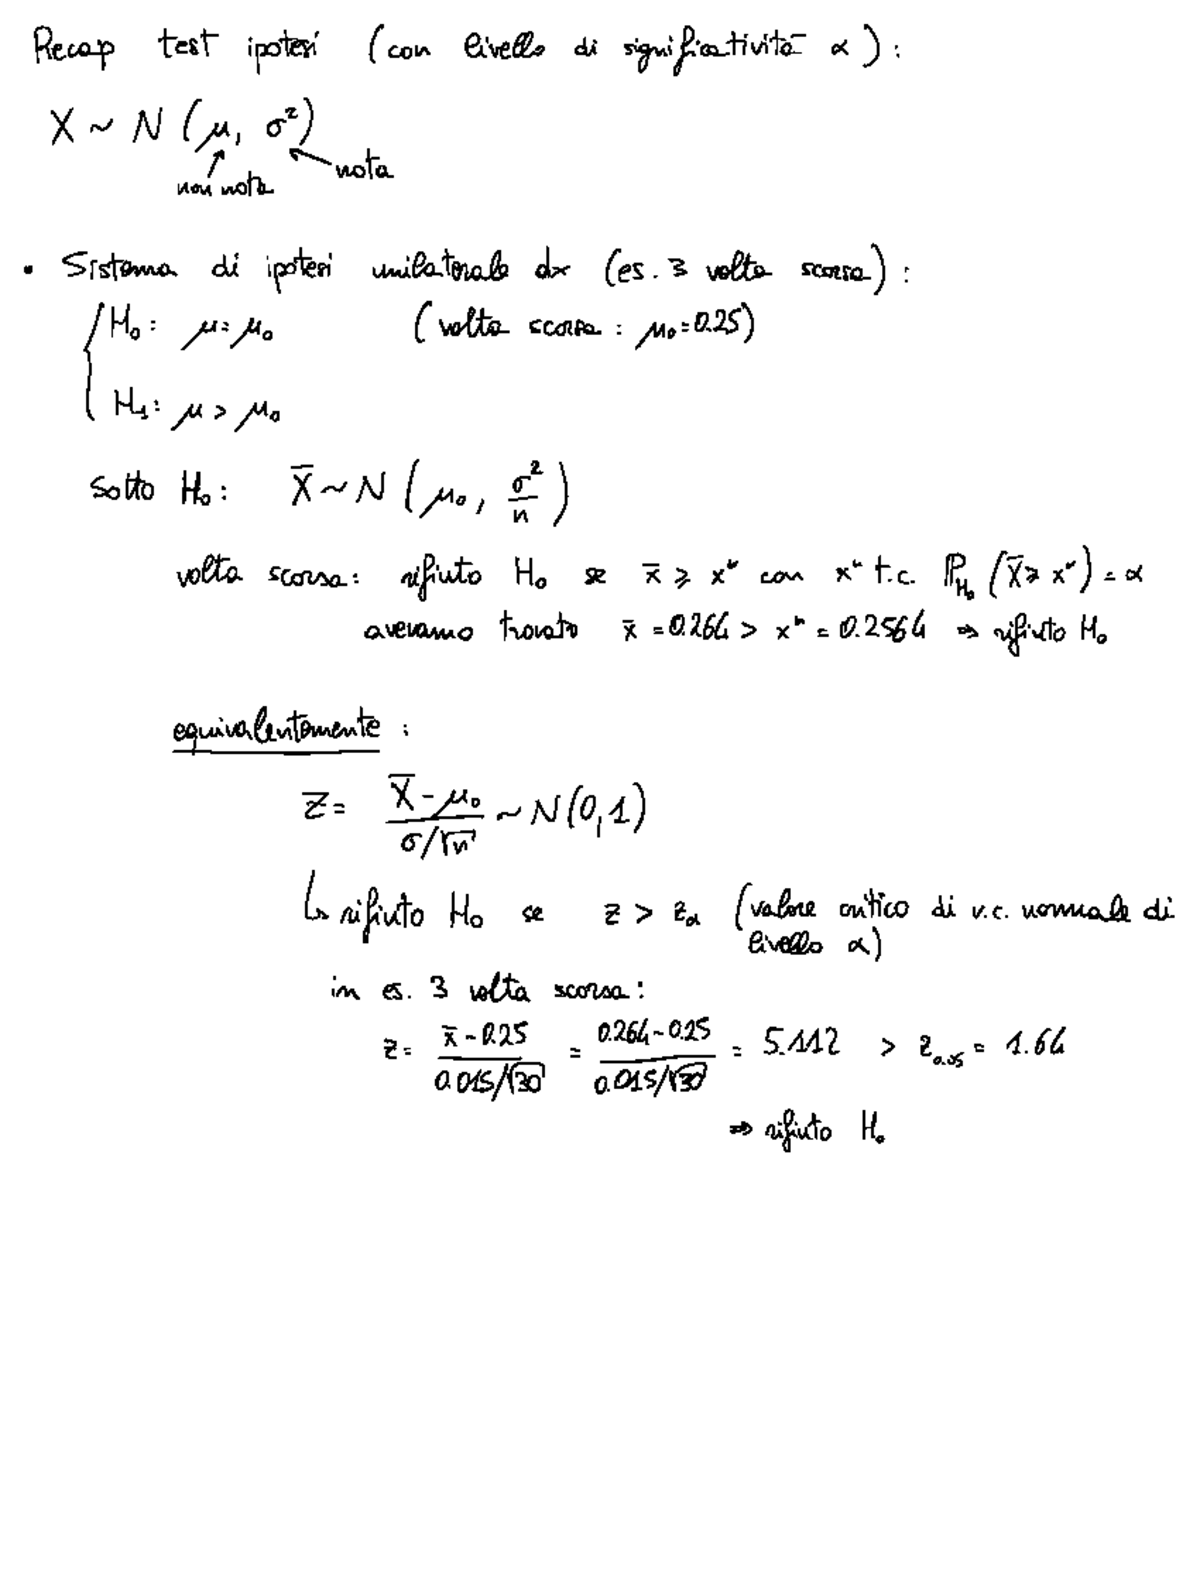 Recap test ipotesi (con livello di significatività α):
X ~ N (μ, σ²)
non nota
nota
• Sistema di ipotesi unilaterale dx (es. 3 volta scorsa):
H₀: μ = μ₀ (volta scorsa: μ₀ = 0.25)
H₁: μ > μ₀
Sotto H₀: X̄ ~ N (μ₀, σ²/n)
volta scorsa: rifiuto H₀ se x̄ ⩾ x* con x* t.c. ℙ_H₀ (X̄ ⩾ x*) = α
avevamo trovato x̄ = 0.264 > x* = 0.2564 ⇒ rifiuto H₀
equivalentemente:
Z = (X̄ - μ₀)/(σ/√n) ~ N(0,1)
↳ rifiuto H₀ se z > z_α (valore critico di v.c. normale di
livello α)
in es. 3 volta scorsa:
z = (x̄ - 0.25)/(0.015/√30) = (0.264 - 0.25)/(0.015/√30) = 5.112 > z_0.05 = 1.64
⇒ rifiuto H₀